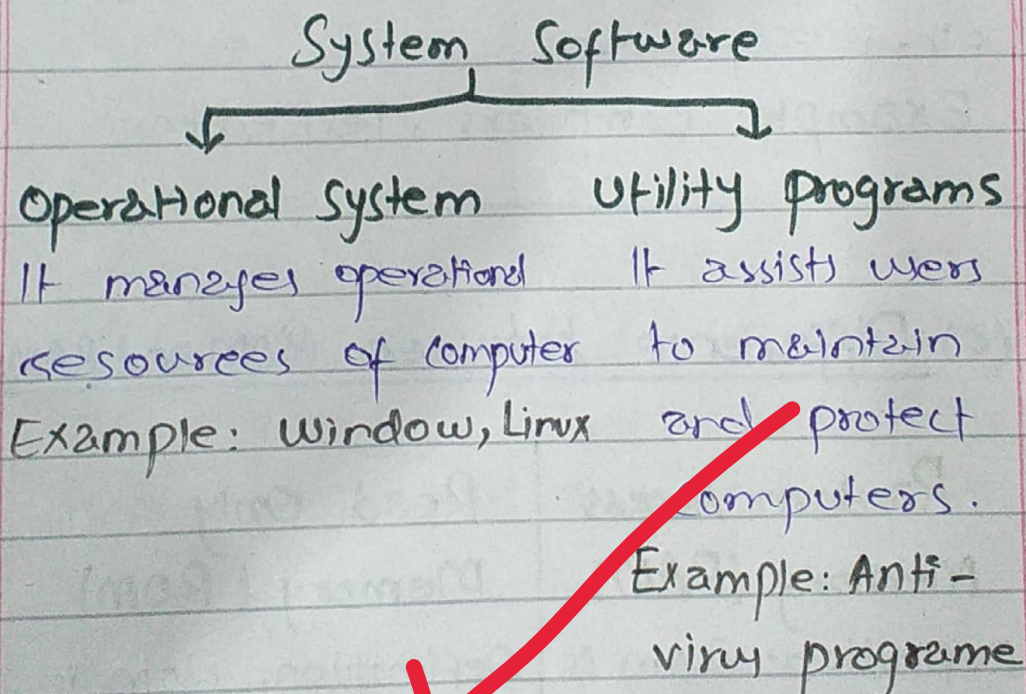 System Software
Operational System
It manages operational
resources of computer
Example: Window, Linux
Utility programs
It assists users
to maintain
and protect
computers.
Example: Anti-
virus programe